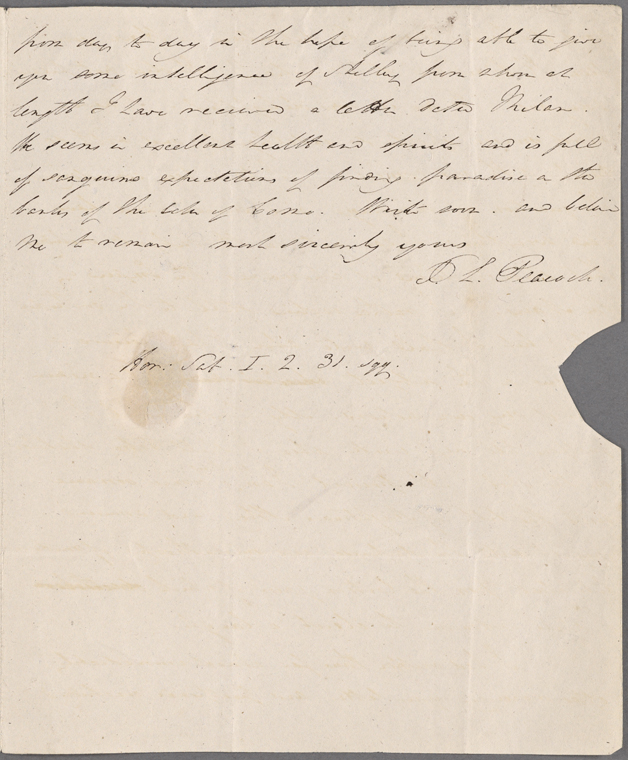 from day to day in the hope of being able to give
you some intelligence of Shelley from whom at
length I have received a letter dated Milan.
He seems in excellent health and spirits and is full
of sanguine expectations of finding paradise on the
banks of the lake of Como. Write soon. and believe
me to remain most sincerely yours
T L. Peacock.
Hor: Sat. I. 2. 31. sqq.